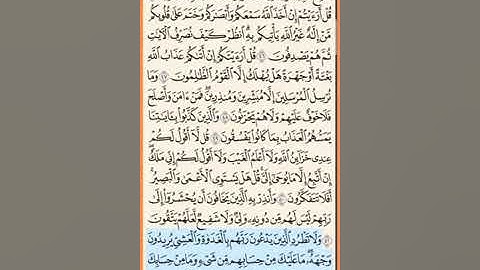 قُلْ أَرَءَيْتُمْ إِنْ أَخَذَ ٱللَّهُ سَمْعَكُمْ وَأَبْصَٰرَكُمْ وَخَتَمَ عَلَىٰ قُلُوبِكُم
مَّنْ إِلَٰهٌ غَيْرُ ٱللَّهِ يَأْتِيكُم بِهِ ۗ ٱنظُرْ كَيْفَ نُصَرِّفُ ٱلْـَٔايَٰتِ
ثُمَّ هُمْ يَصْدِفُونَ ٤٦ قُلْ أَرَءَيْتَكُمْ إِنْ أَتَىٰكُمْ عَذَابُ ٱللَّهِ
بَغْتَةً أَوْ جَهْرَةً هَلْ يُهْلَكُ إِلَّا ٱلْقَوْمُ ٱلظَّٰلِمُونَ ٤٧ وَمَا
نُرْسِلُ ٱلْمُرْسَلِينَ إِلَّا مُبَشِّرِينَ وَمُنذِرِينَ ۖ فَمَنْ ءَامَنَ وَأَصْلَحَ
فَلَا خَوْفٌ عَلَيْهِمْ وَلَا هُمْ يَحْزَنُونَ ٤٨ وَٱلَّذِينَ كَذَّبُوا۟ بِـَٔايَٰتِنَا
يَمَسُّهُمُ ٱلْعَذَابُ بِمَا كَانُوا۟ يَفْسُقُونَ ٤٩ قُل لَّآ أَقُولُ لَكُمْ
عِندِى خَزَآئِنُ ٱللَّهِ وَلَآ أَعْلَمُ ٱلْغَيْبَ وَلَآ أَقُولُ لَكُمْ إِنِّى مَلَكٌ ۖ
إِنْ أَتَّبِعُ إِلَّا مَا يُوحَىٰٓ إِلَىَّ ۚ قُلْ هَلْ يَسْتَوِى ٱلْأَعْمَىٰ وَٱلْبَصِيرُ ۚ
أَفَلَا تَتَفَكَّرُونَ ٥٠ وَأَنذِرْ بِهِ ٱلَّذِينَ يَخَافُونَ أَن يُحْشَرُوٓا۟ إِلَىٰ
رَبِّهِمْ ۙ لَيْسَ لَهُم مِّن دُونِهِۦ وَلِىٌّ وَلَا شَفِيعٌ لَّعَلَّهُمْ يَتَّقُونَ
٥١ وَلَا تَطْرُدِ ٱلَّذِينَ يَدْعُونَ رَبَّهُم بِٱلْغَدَوٰةِ وَٱلْعَشِىِّ يُرِيدُونَ
وَجْهَهُۥ ۖ مَا عَلَيْكَ مِنْ حِسَابِهِم مِّن شَىْءٍ وَمَا مِنْ حِسَابِكَ